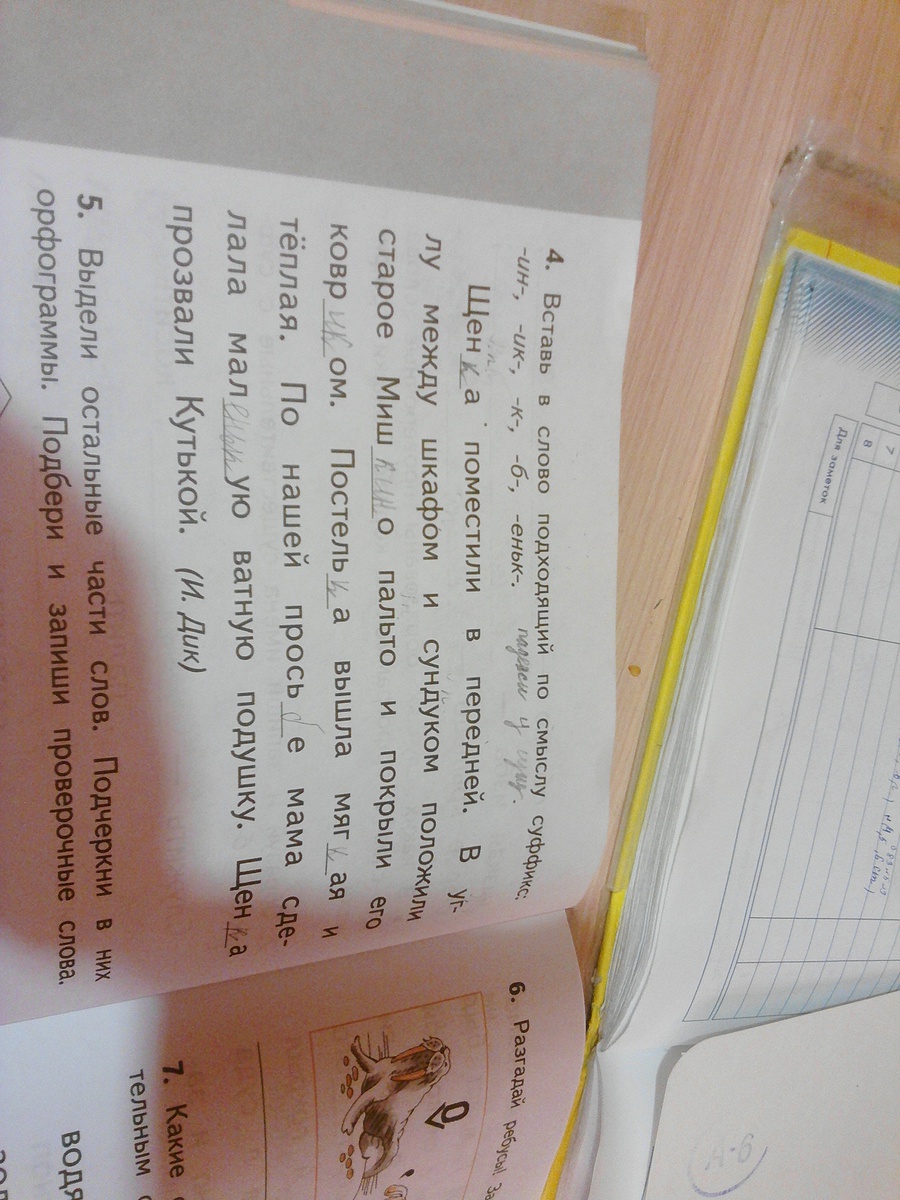 4. Вставь в слово подходящий по смыслу суффикс:
-ин-, -ик-, -к-, -б-, -еньк-.
Щенка поместили в передней. В уг-
лу между шкафом и сундуком положили
старое Мишкино пальто и покрыли его
ковриком. Постелька вышла мягкая и
тёплая. По нашей просьбе мама сде-
лала маленькую ватную подушку. Щенка
прозвали Кутькой. (И. Дик)
5. Выдели остальные части слов. Подчеркни в них
орфограммы. Подбери и запиши проверочные слова.
6. Разгадай ребусы! За
7. Какие
тельным
водя
7
8
Для заметок